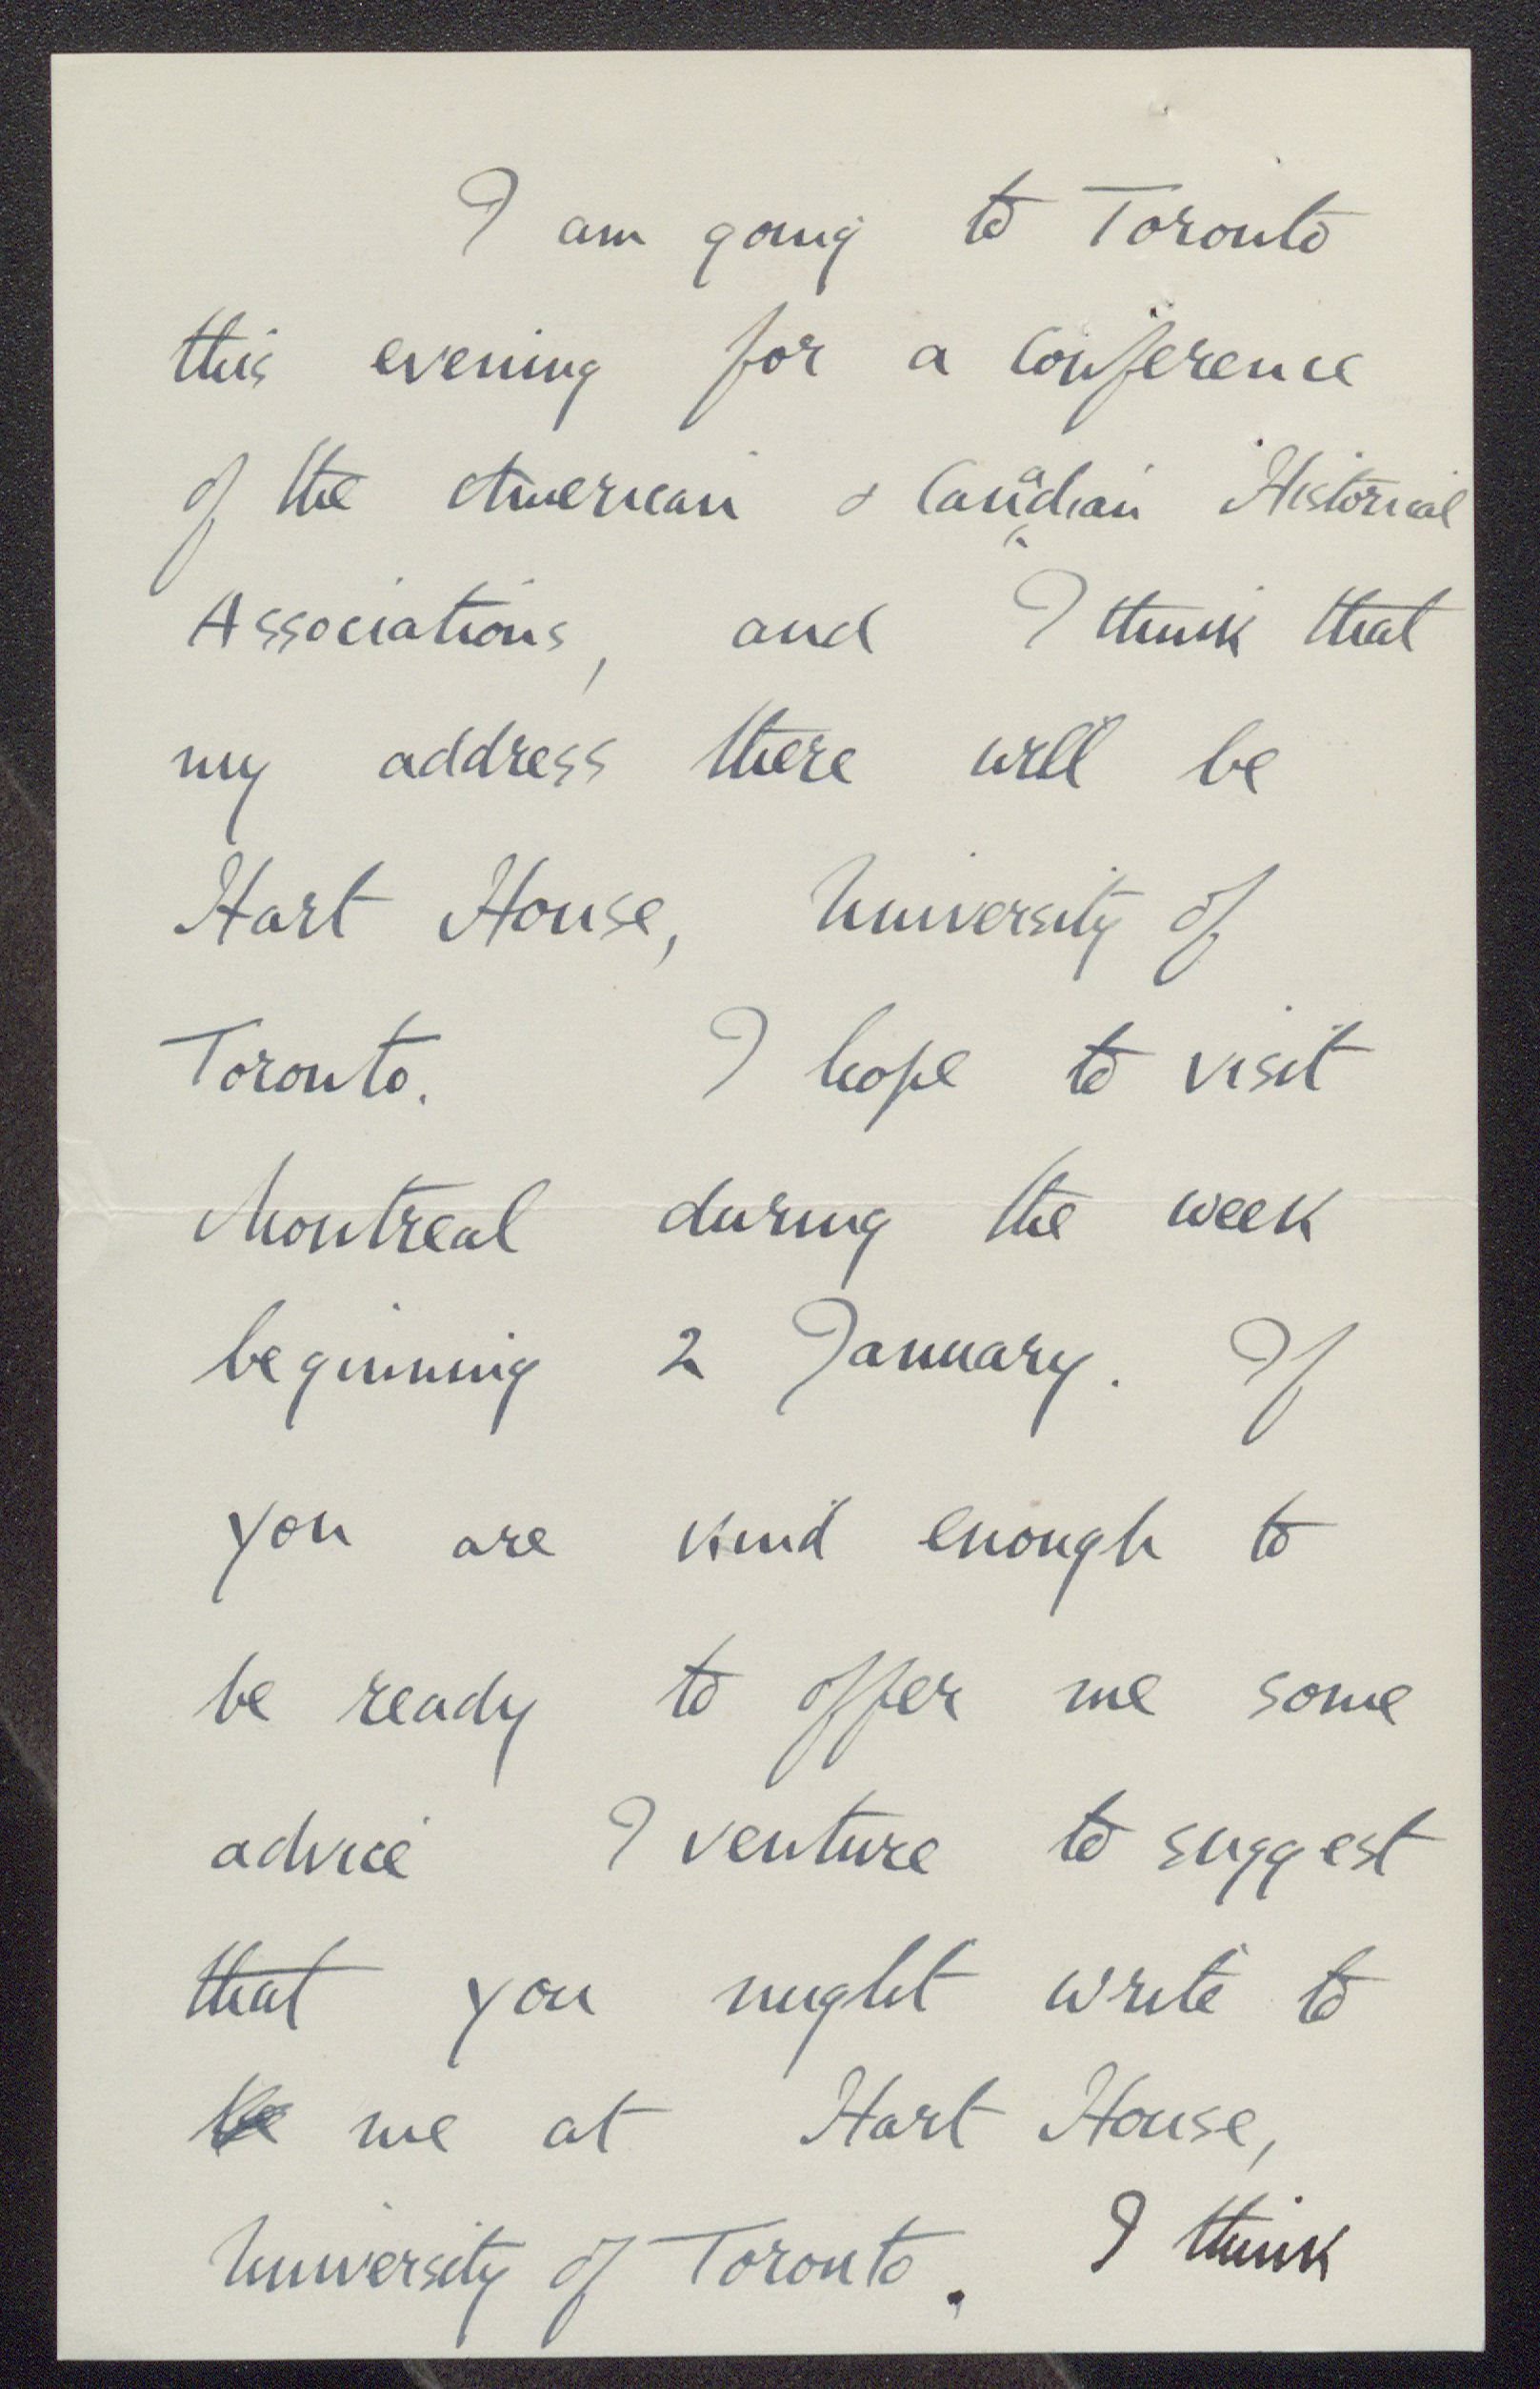 I am going to Toronto
this evening for a conference
of the American & Canadian Historical
Associations, and I think that
my address there will be
Hart House, University of
Toronto. I hope to visit
Montreal during the week
beginning 2 January. If
you are kind enough to
be ready to offer me some
advice I venture to suggest
that you might write to
me at Hart House,
University of Toronto. I think